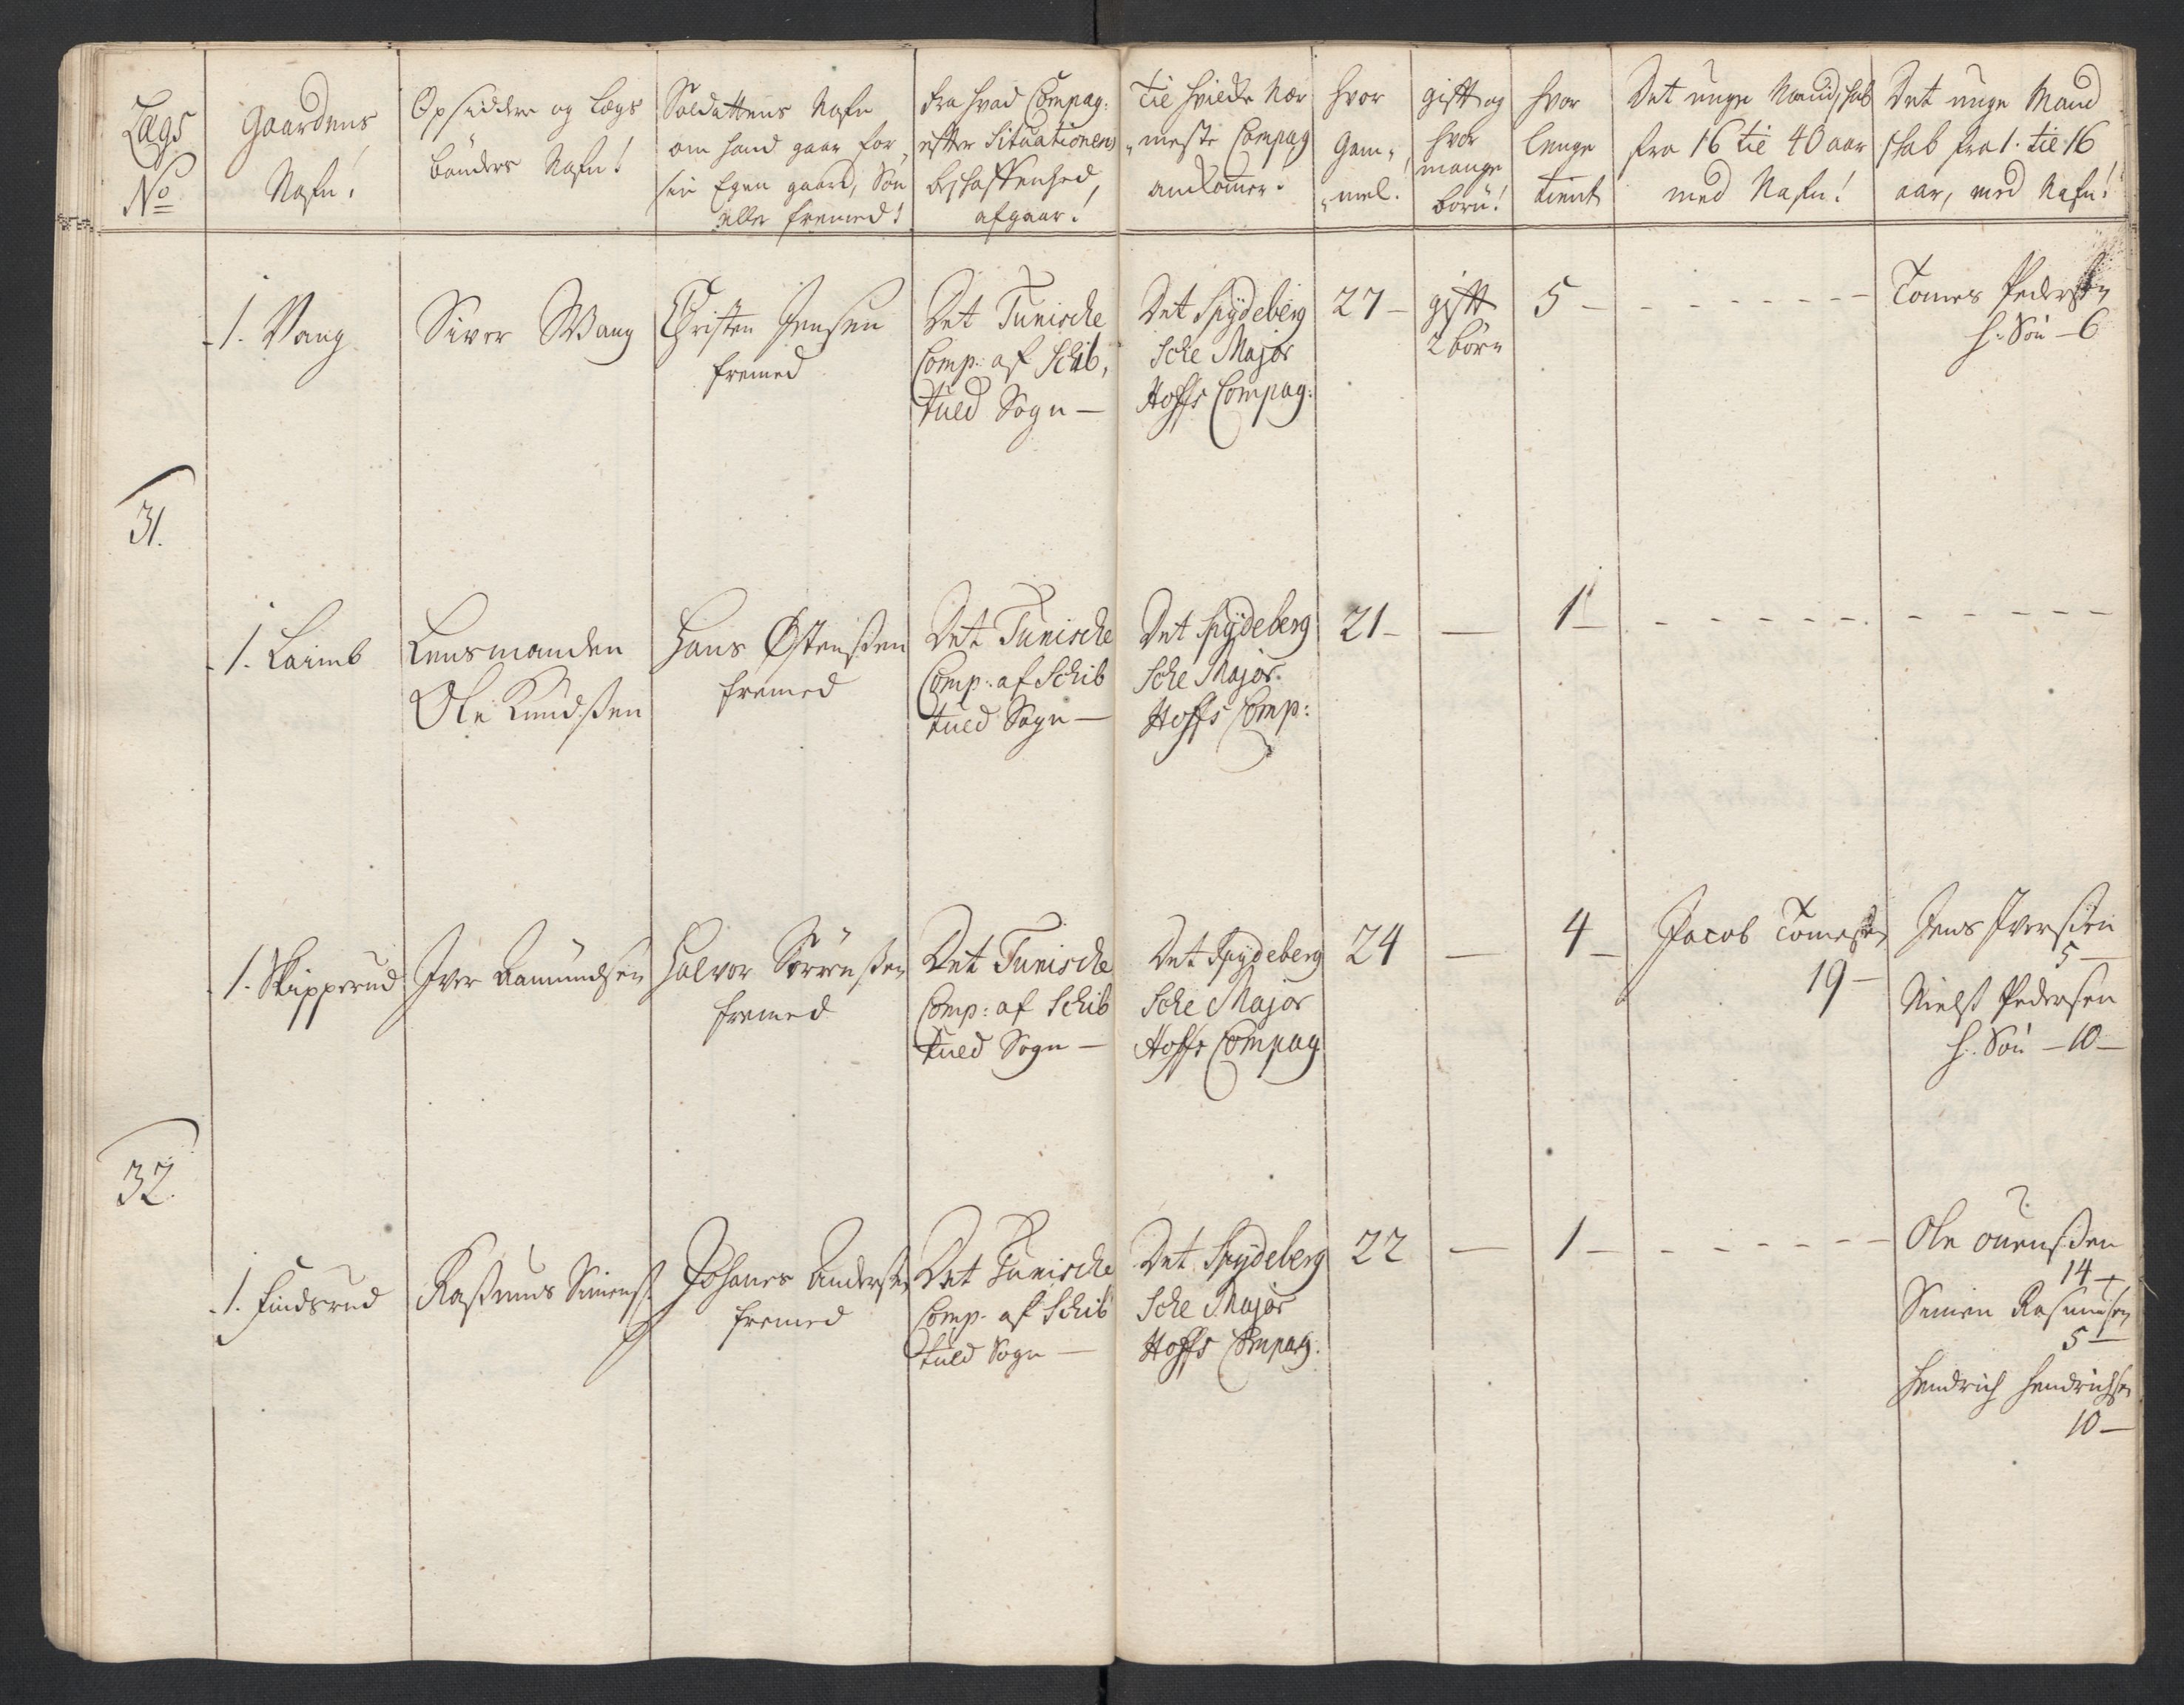 Lægs
No
Gaardens
Nafn!
Opsiddere og Lægs
bönders Nafn!
Soldattens Nafn
om hand gaar for
sin Egen gaard, Søn
eller fremed!
fra hvad Compag:
efter Situationens
beskaffenhed,
afgaar!
Til hvilcke nær
meste Compag
ankommer.
hvor
Gam
mel.
gift og
hvor
mange
börn!
hvor
lenge
tient
Det unge Mandskab
fra 16 til 40 aar
med Nafn!
Det unge Mand
skab fra 1. til 16
aar, med Nafn!
1. Vang
Siver Wang
Christen Jensen
fremed
Det Tunische
Comp: af Schib,
tued Sogn —
Det Spydeberg
Sche Major
Hoffs Compag:
27 —
gift
2 börn
5 —
- - - - - -
Tomes Pedersen
h: Søn — 6
31.
1. Laimb
Lensmanden
Ole Knudssen
Hans Østenssen
fremed
Det Tunische
Comp: af Schib
tued Sogn —
Det Spydeberg
Sche Major
Hoffs Comp:
21 —
—
1 —
- - - - - -
- - - - -
1. Skipperud
Iver Amundsen
Halvor Sörrenssen
fremed
Det Tunische
Comp: af Schib
tued Sogn —
Det Spydeberg
Sche Major
Hoffs Compag
24
—
4 —
Jacob Tomessen
19 —
Jens Iverssen
5 —
Nielss Pedersen
h: Søn — 10 —
32.
1. Findsrud
Rassmus Simenss
Johanes Anderssen
fremed
Det Tunische
Comp. af Schib
tued Sogn —
Det Spydeberg
Sche Major
Hoffs Compag:
22
—
1 —
- - - - - -
Ole ouenssen
14 +
Simen Rasmusen
5 —
Hendrich Hendrichsen
10 —